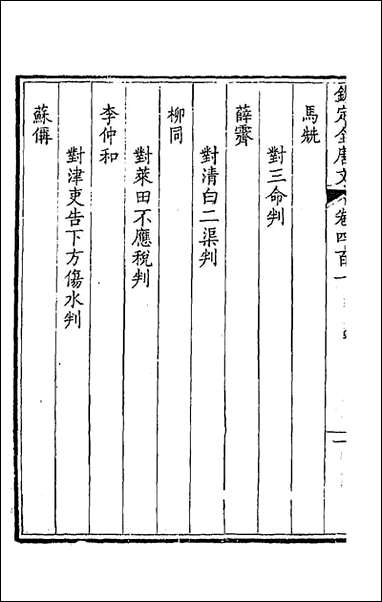 欽定全唐文 卷四百一
馬兟
對三命判
薛齊
對清白二渠判
柳同
對萊田不應稅判
李仲和
對津吏告下方傷水判
蘇倎